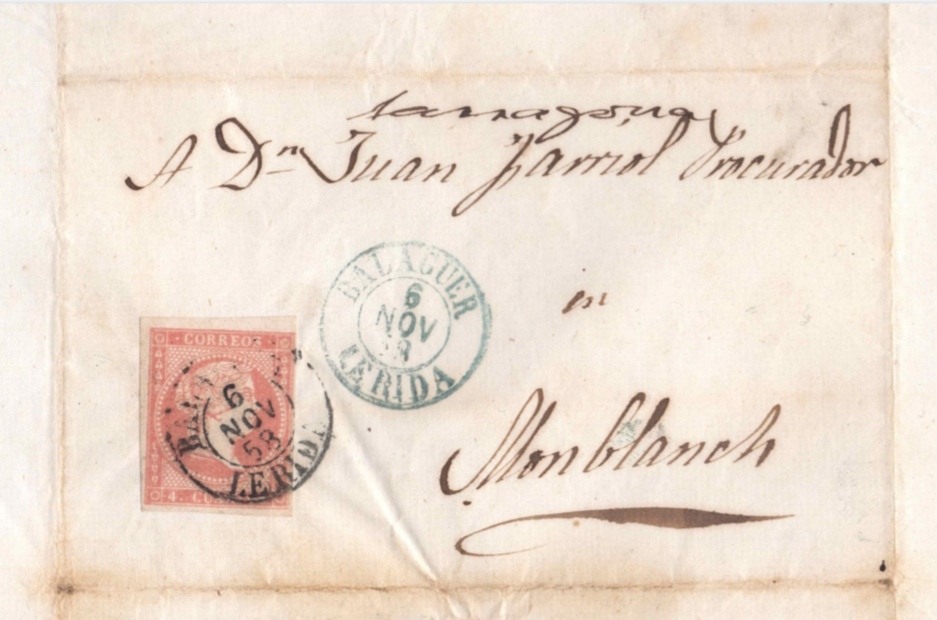 tarragona
A Dn Juan Farriol Procurador
en
Monblanch
BALAGUER
6
NOV
58
LERIDA
CORREOS
6
NOV
58
LERIDA
4. CU